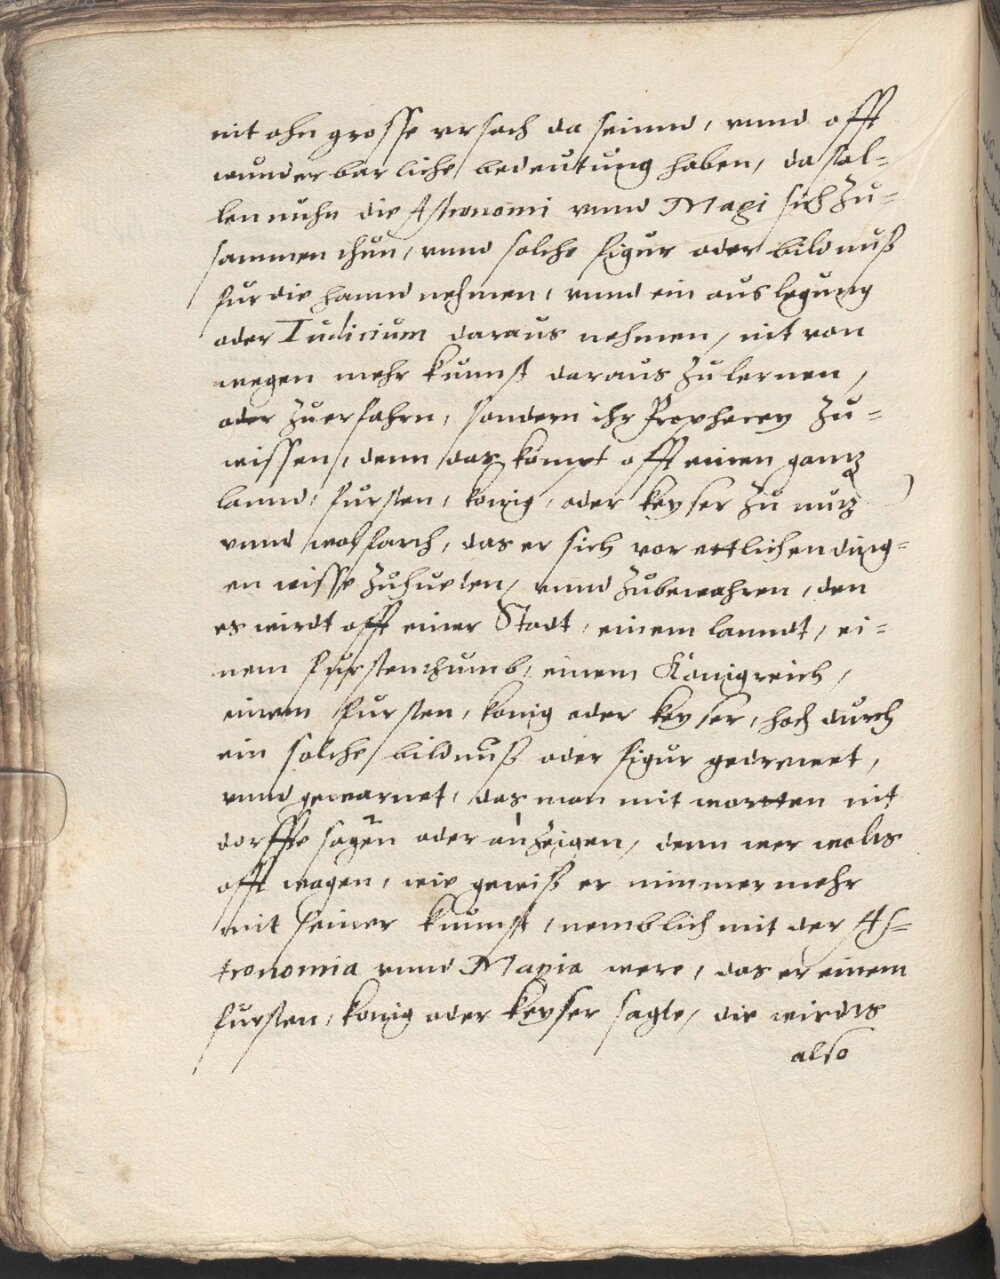 nit ohn grosse vrsach da seinnd, vnnd offt
wunderbarliche bedeutung haben, da sol-
len nuhn die Astronomi vnnd Magi sich zu-
sammen thun, vnnd solche figur oder bildnuß
fur die hannd nehmen, vnnd ein auslegung
oder Iudicium daraus nehmen, nit von
wegen mehr kunnst daraus zu lernen,
oder zuerfahrn, sondern ihr Prophecey zu-
wissen, denn das kompt offt einen gantz
lannd, fursten, konig, oder keyser zu nutz
vnnd wolfarth, das er sich vor ettlichen ding-
en wisse zuhueten, vnnd zubewahren, den
es wirdt offt einer Stadt, einem lanndt, ei-
nem furstenthumb, einem Königreich,
einem fursten, konig oder keyser, hoch durch
ein solche bildnuß oder figur gedrewet,
vnnd gewarnet, das man mit wortten nit
dorffte sagen oder anzeigen, denn wer wolts
offt wagen, wie gewiß er nimmermehr
mit seiner kunnst, nemblich mit der As-
tronomia vnnd Magia were, das er einem
fursten, konig oder keyser sagte, dir wirdts
also